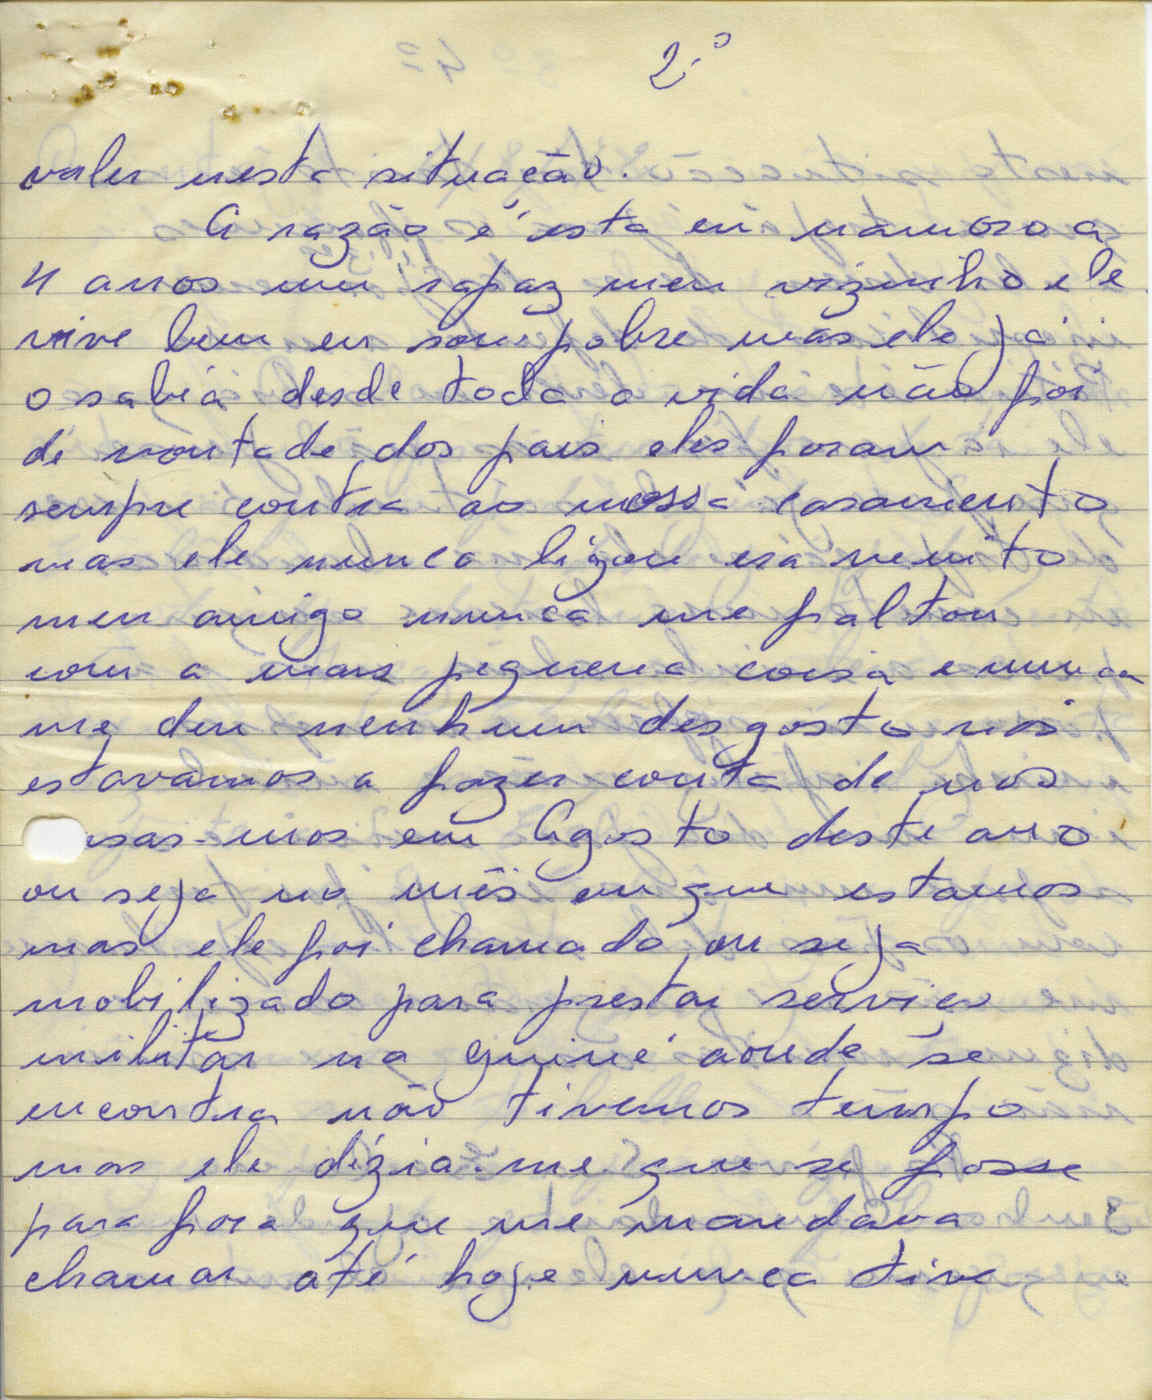 2.º
valer nesta situação.
A razão é esta eu namoro a
4 anos um rapaz meu vizinho ele
vive bem eu sou pobre mas ele já
o sabia desde toda a vida não foi
de vontade dos pais eles foram
sempre contra ao nossa casamento
mas ele nunca ligou era muito
meu amigo nunca me faltou
com a mais pequena coisa e nunca
me deu nenhum desgosto nós
estavamos a fazer conta de nos
sas-mos em Agosto deste ano
ou seja no mês em que estamos
mas ele foi chamado ou seja
mobilizado para prestar serviço
militar na guiné aonde se
encontra não tivemos tempo
mas ele dizia-me que se fosse
para fora que me mandava
chamar até hoje nunca tive